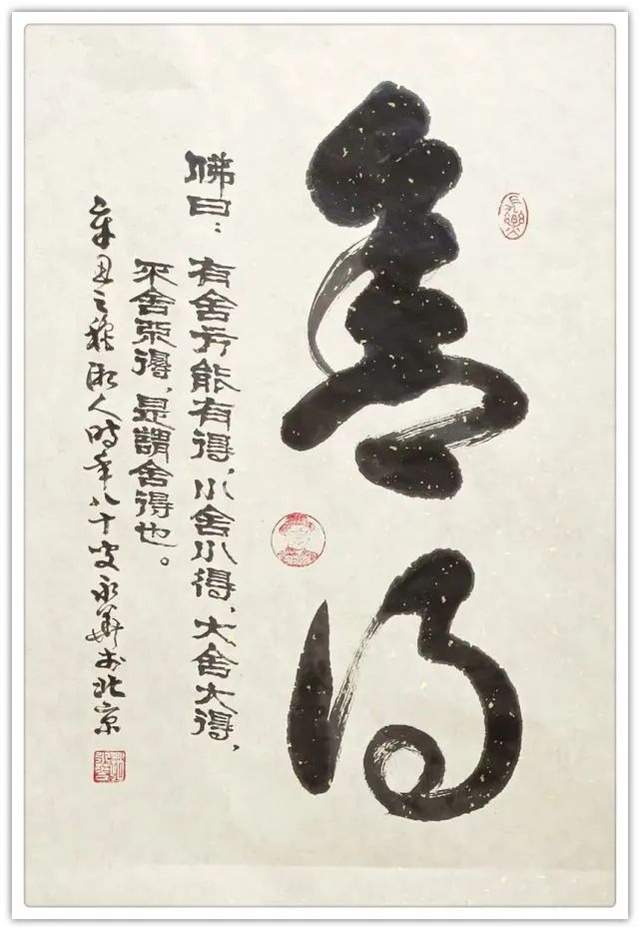 舍得
佛曰：有舍方能有得，小舍小得，大舍大得，
不舍不得，是謂舍得也。
辛丑之秋湘人時年八十叟永華于北京